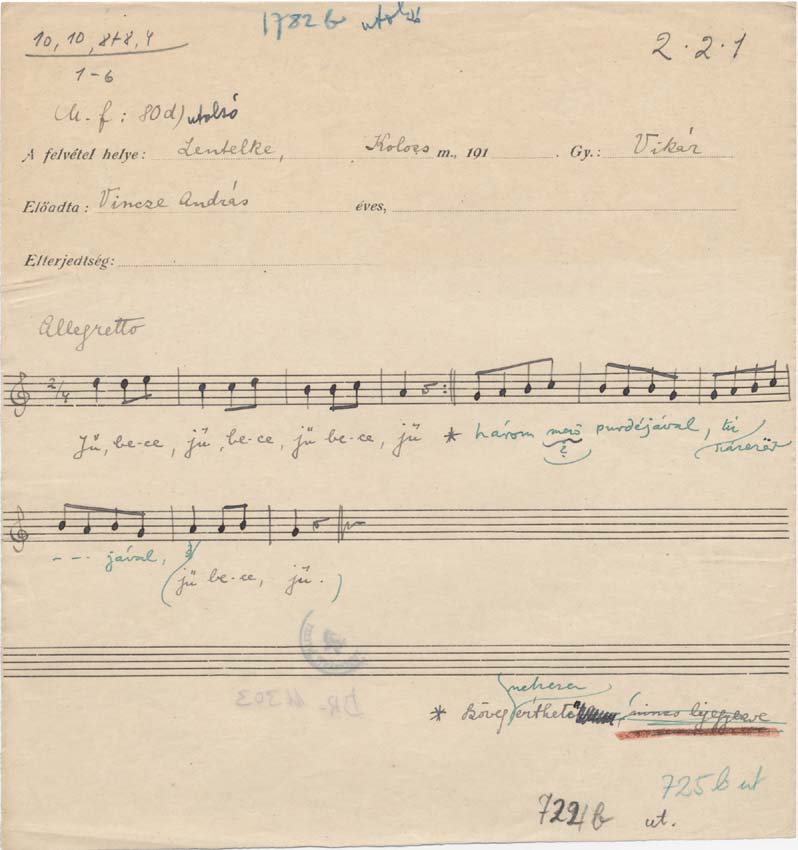 1782 b utolsó
10, 10, 8+8, 4
2.2.1
1-6
(M. f: 80d) utolsó
A felvétel helye: Lentelke, Kolozs m., 191 . Gy.: Vikár
Előadta: Vincze András éves,
Elterjedtség:
Allegretto
2/4
Jű, be-ce, jű, be-ce, jű be-ce, jű * három merő purdéjával,
?
--- jával,
(jű be-ce, jű.)
DR-11303
nehezen
* Szöveg érthető, nincs lejegyezve
725 b ut
722/b ut.